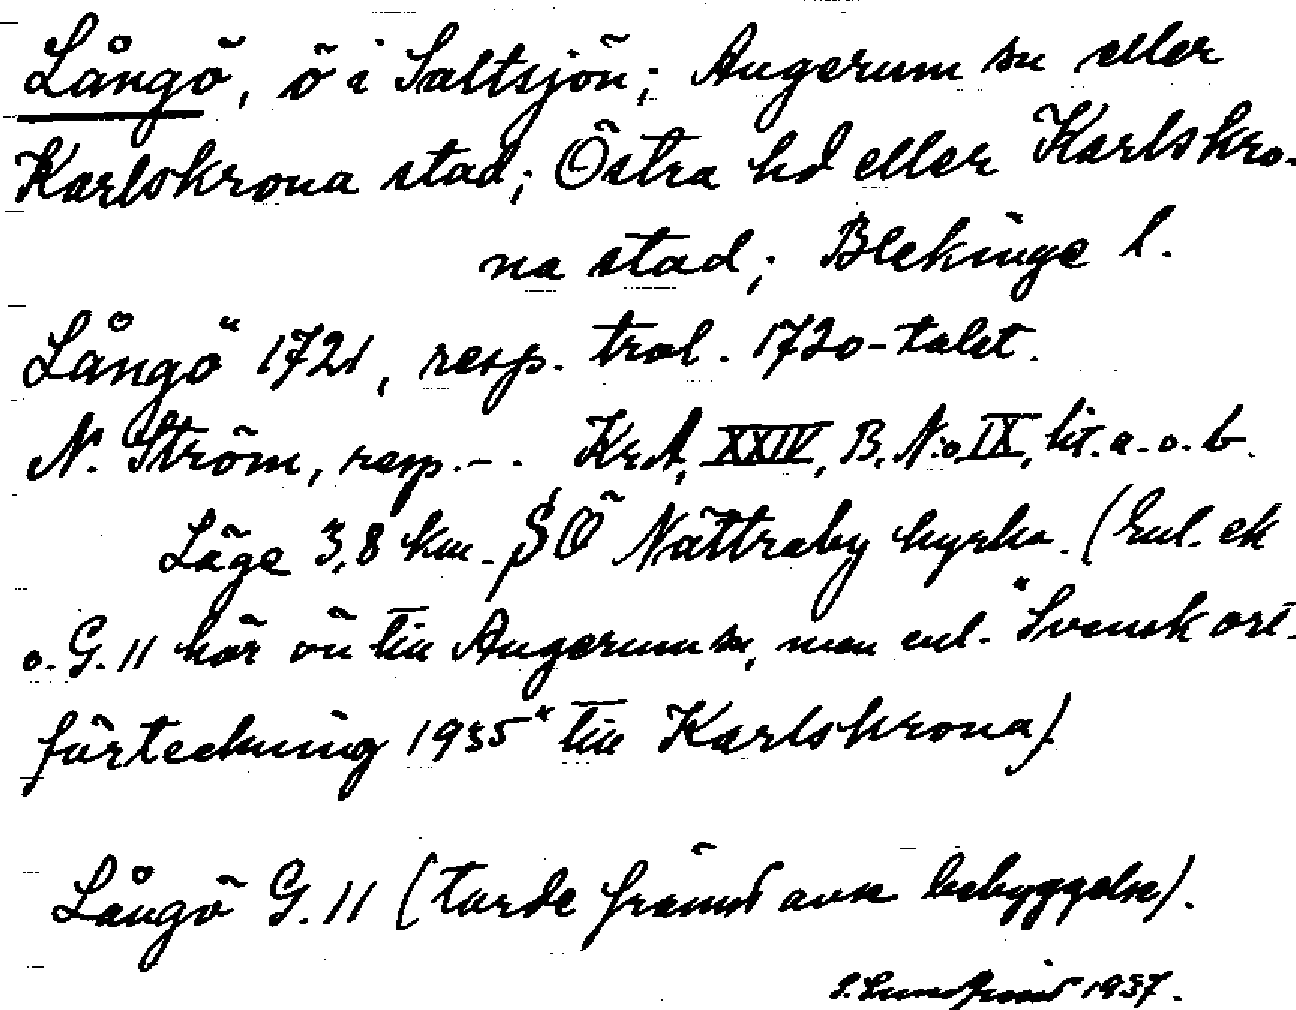 Långö, ö i Saltsjön; Augerum sn eller
Karlskrona stad; Östra hd eller Karlskro-
na stad; Blekinge l.
Långö 1721, resp. trol. 1720-talet.
N. Ström, resp. -. Kr.A, XXIV, B, N:o IX, lit. a. o. b.
Läge 3,8 km. SÖ Nättraby kyrka. (Enl. ek
o. G. 11 hör ön till Augerum sn, men enl. "Svensk ort-
förteckning 1935" till Karlskrona).
Långö G. 11 (torde främst avse bebyggelse).
1937.